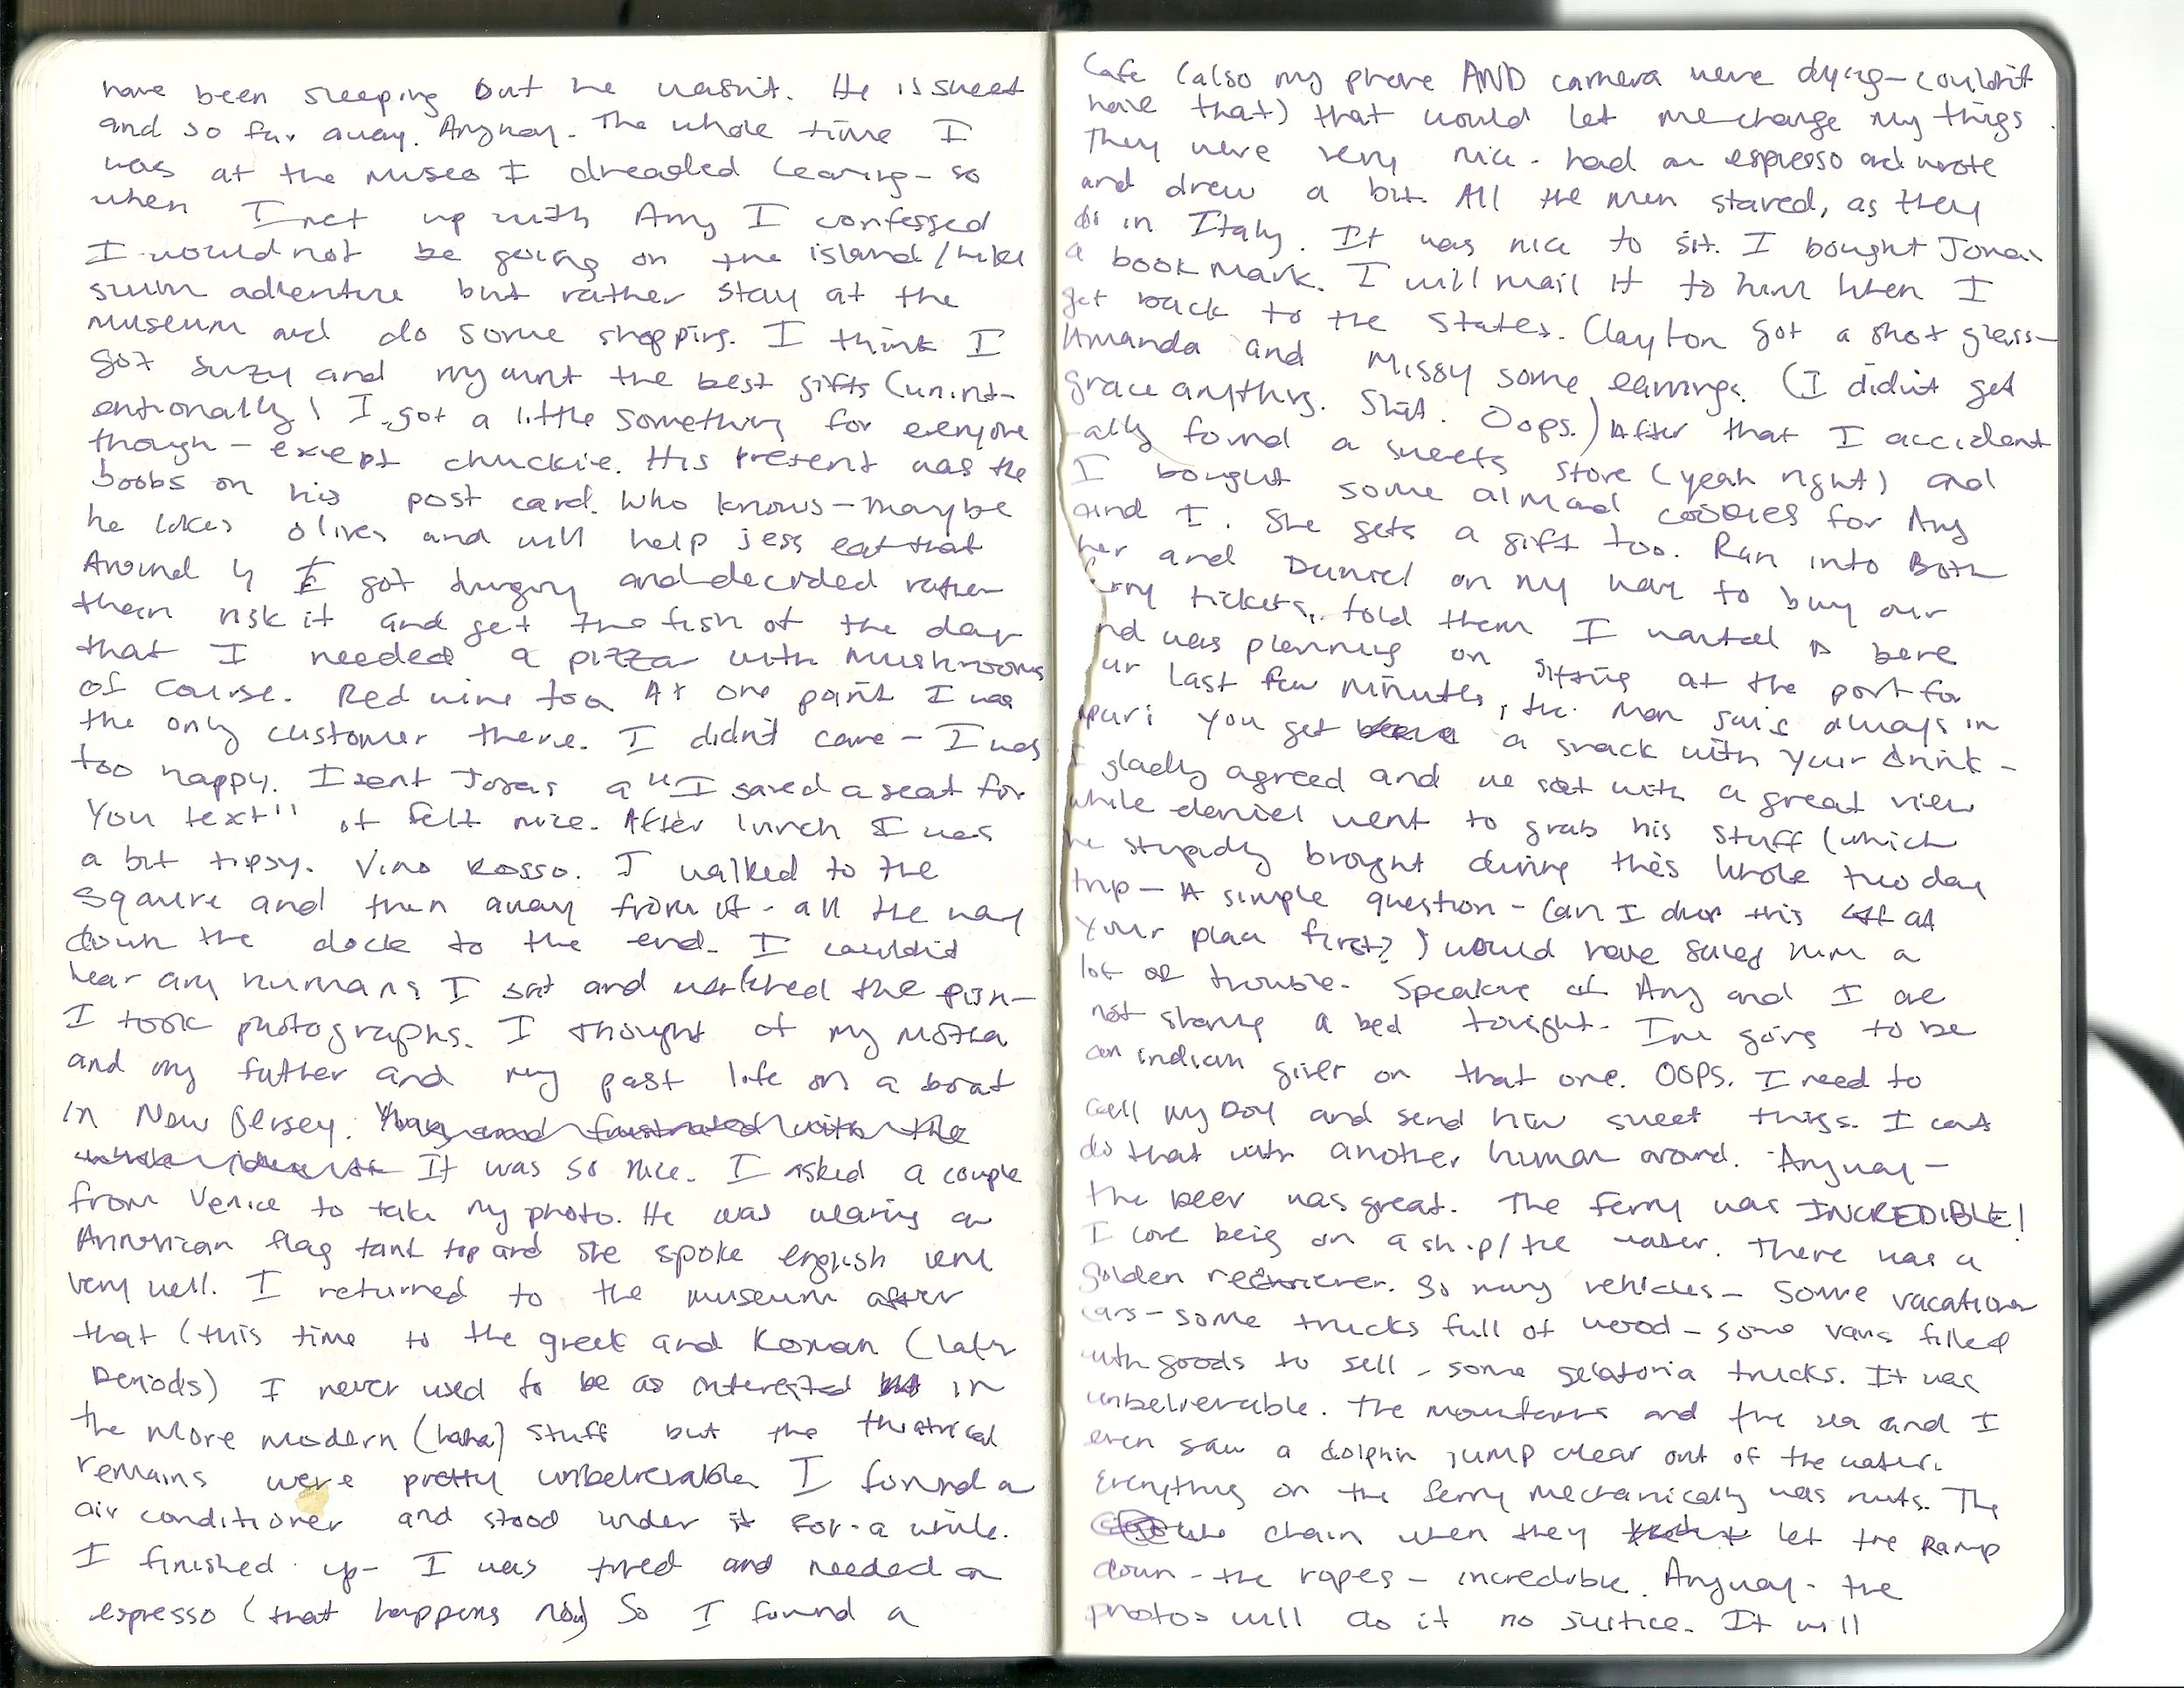 have been sleeping but he wasn't. He is sweet
and so far away. Anyway. The whole time I
was at the museo I dreaded leaving - so
when I met up with Amy I confessed
I would not be going on the island/hike
swim adventure but rather stay at the
museum and do some shopping. I think I
got Suzy and my aunt the best gifts (unint-
entionally! I got a little something for everyone
though - except chuckie. His present was the
boobs on his post card. Who knows - maybe
he likes olives and will help jess eat that
Around 4 I got hungry and decided rather
than risk it and get the fish of the day
that I needed a pizza with mushrooms
of course. Red wine too. At one point I was
the only customer there. I didn't care - I was
too happy. I sent Jonas a "I saved a seat for
you text" it felt nice. After lunch I was
a bit tipsy. Vino Rosso. I walked to the
Square and then away from it - all the way
down the dock to the end. I couldn't
hear any humans I sat and watched the
I took photographs. I thought of my mother
and my father and my past life on a boat
in New Jersey.
It was so nice. I asked a couple
from Venice to take my photo. He was wearing an
American flag tank top and she spoke english
very well. I returned to the museum after
that (this time to the greek and Roman (later
Periods) I never used to be as interested in
the more modern (haha) stuff but the theatrical
remains were pretty unbelievable I found a
air conditioner and stood under it for a while.
I finished up - I was tired and needed an
espresso (that happens now) So I found a
Cafe (also my phone AND camera were dying - couldn't
have that) that would let me charge my things.
They were very nice - had an espresso and wrote
and drew a bit. All the men stared, as they
do in Italy. It was nice to sit. I bought Jonas
a book mark. I will mail it to him when I
get back to the states. Clayton got a shot glass -
Amanda and Missy some earrings. (I didn't get
grace anything. Shit. Oops.) After that I accident
-ally found a sweets store (yeah right) and
I bought some almond cookies for Amy
and I. She gets a gift too. Ran into Both
her and Daniel on my way to buy our
ferry tickets, told them I wanted a beer
and was planning on sitting at the port for
our last few minutes, the man said always in
Lipari you get a snack with your drink -
I gladly agreed and we sat with a great view
while daniel went to grab his stuff (which
he stupidly brought during this whole two day
trip - A simple question - Can I drop this at
your place first?) would have saved him a
lot of trouble. Speaking of Amy and I are
not sharing a bed tonight. Im going to be
an indian giver on that one. OOPS. I need to
call my boy and send him sweet things. I cant
do that with another human around. Anyway -
the beer was great. The ferry was INCREDIBLE!
I love being on a ship/the water. There was a
golden retriever. So many vehicles - Some vacation
cars - some trucks full of wood - some vans filled
with goods to sell - some gelatoria trucks. It was
unbelievable. The mountains and the sea and I
even saw a dolphin jump clear out of the water.
Everything on the ferry mechanically was nuts. The
chain when they let the Ramp
down - the ropes - incredible. Anyway - the
photos will do it no justice. It will